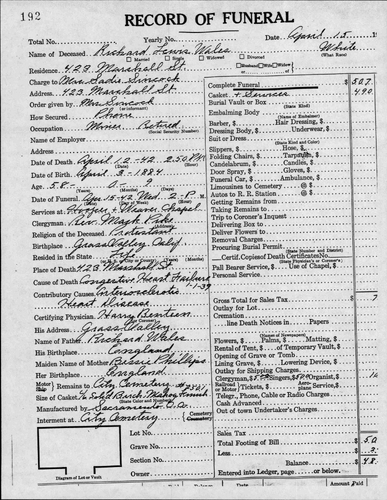 192
RECORD OF FUNERAL
Total No. Yearly No. Date April 15
Name of Deceased Richard Lewis Wales White
Married Single Widowed Divorced (What Race)
Residence 423 Marshall St.
Charge to Mrs. Sadie Simcock
Address 423 Marshall St.
Order given by Mrs Simcock
(or informant)
How Secured Phone
Occupation Miner Retired
(Social Security Number)
Name of Employer
Address
Date of Death April 12-42 2:50 P.M.
Date of Birth April 3-1884
Age 58 - 0 - 9
(Years) (Months) (Days)
Date of Funeral Apr 15-42 Wed 2 P.M.
Services at Hooper & Weaver Chapel
Clergyman Rev. Mark
Religion of the Deceased Protestant
Birthplace Grass Valley Calif
Resided in the State Life
Place of Death 423 Marshall St.
Cause of Death Congestive Heart Failure
Contributory Causes Arteriosclerotic
Heart Disease
Certifying Physician Harry
His Address Grass Valley
Name of Father Richard Wales
His Birthplace England
Maiden Name of Mother Bessie Phillips
Her Birthplace England
Motor Ship Remains to City Cemetery
Size of Casket Solid Birch Mahog Finish
(State Color and Number)
Manufactured by Sacramento
Interment at City Cemetery
Cemetery
Crematory
Diagram of Lot or Vault
Lot No.
Grave No.
Section No.
Owner
Complete Funeral $ 507
Casket & Services 490
Burial Vault or Box
(State Kind)
Embalming Body
(Name of Embalmer)
Barber, $ Hair Dressing, $
Dressing Body, $ Underwear, $
Suit or Dress
(State Kind and Color)
Slippers, $ Hose, $
Folding Chairs, $ Tarpaulin, $
Candelabrum, $ Candles, $
Door Spray, $ Gloves, $
Funeral Car, $ Ambulance, $
Limousines to Cemetery @ $
Autos to R. R. Station @ $
Getting Remains from
Taking Remains to
Trip to Coroner's Inquest
Delivering Box to
Deliver Flowers to
Removal Charges
Procuring Burial Permit
(State Number and District)
Certif. Copies of Death Certificate No.
(State Forwarder or Coroner)
Pall Bearer Service, $ Use of Chapel, $
Personal Service
Gross Total for Sales Tax $ 7
Outlay for Lot
Cremation
line Death Notices in Papers
(Names of Newspapers)
Flowers, $ Palms, $ Matting, $
Rental of Tent, $ of Temporary Vault, $
Opening of Grave or Tomb
Lining Grave, $ Lowering Device, $
Outlay for Shipping Charges
Clergyman, $ Singers, $ Organist, $
Railroad Motor Tickets, $ Aeroplane Service, $
Telegr., Phone, Cable or Radio Charges
Cash Advanced
Out of town Undertaker's Charges
Sales Tax
Total Footing of Bill $
Less
Balance $
Entered into Ledger, page or below.
Amount Paid